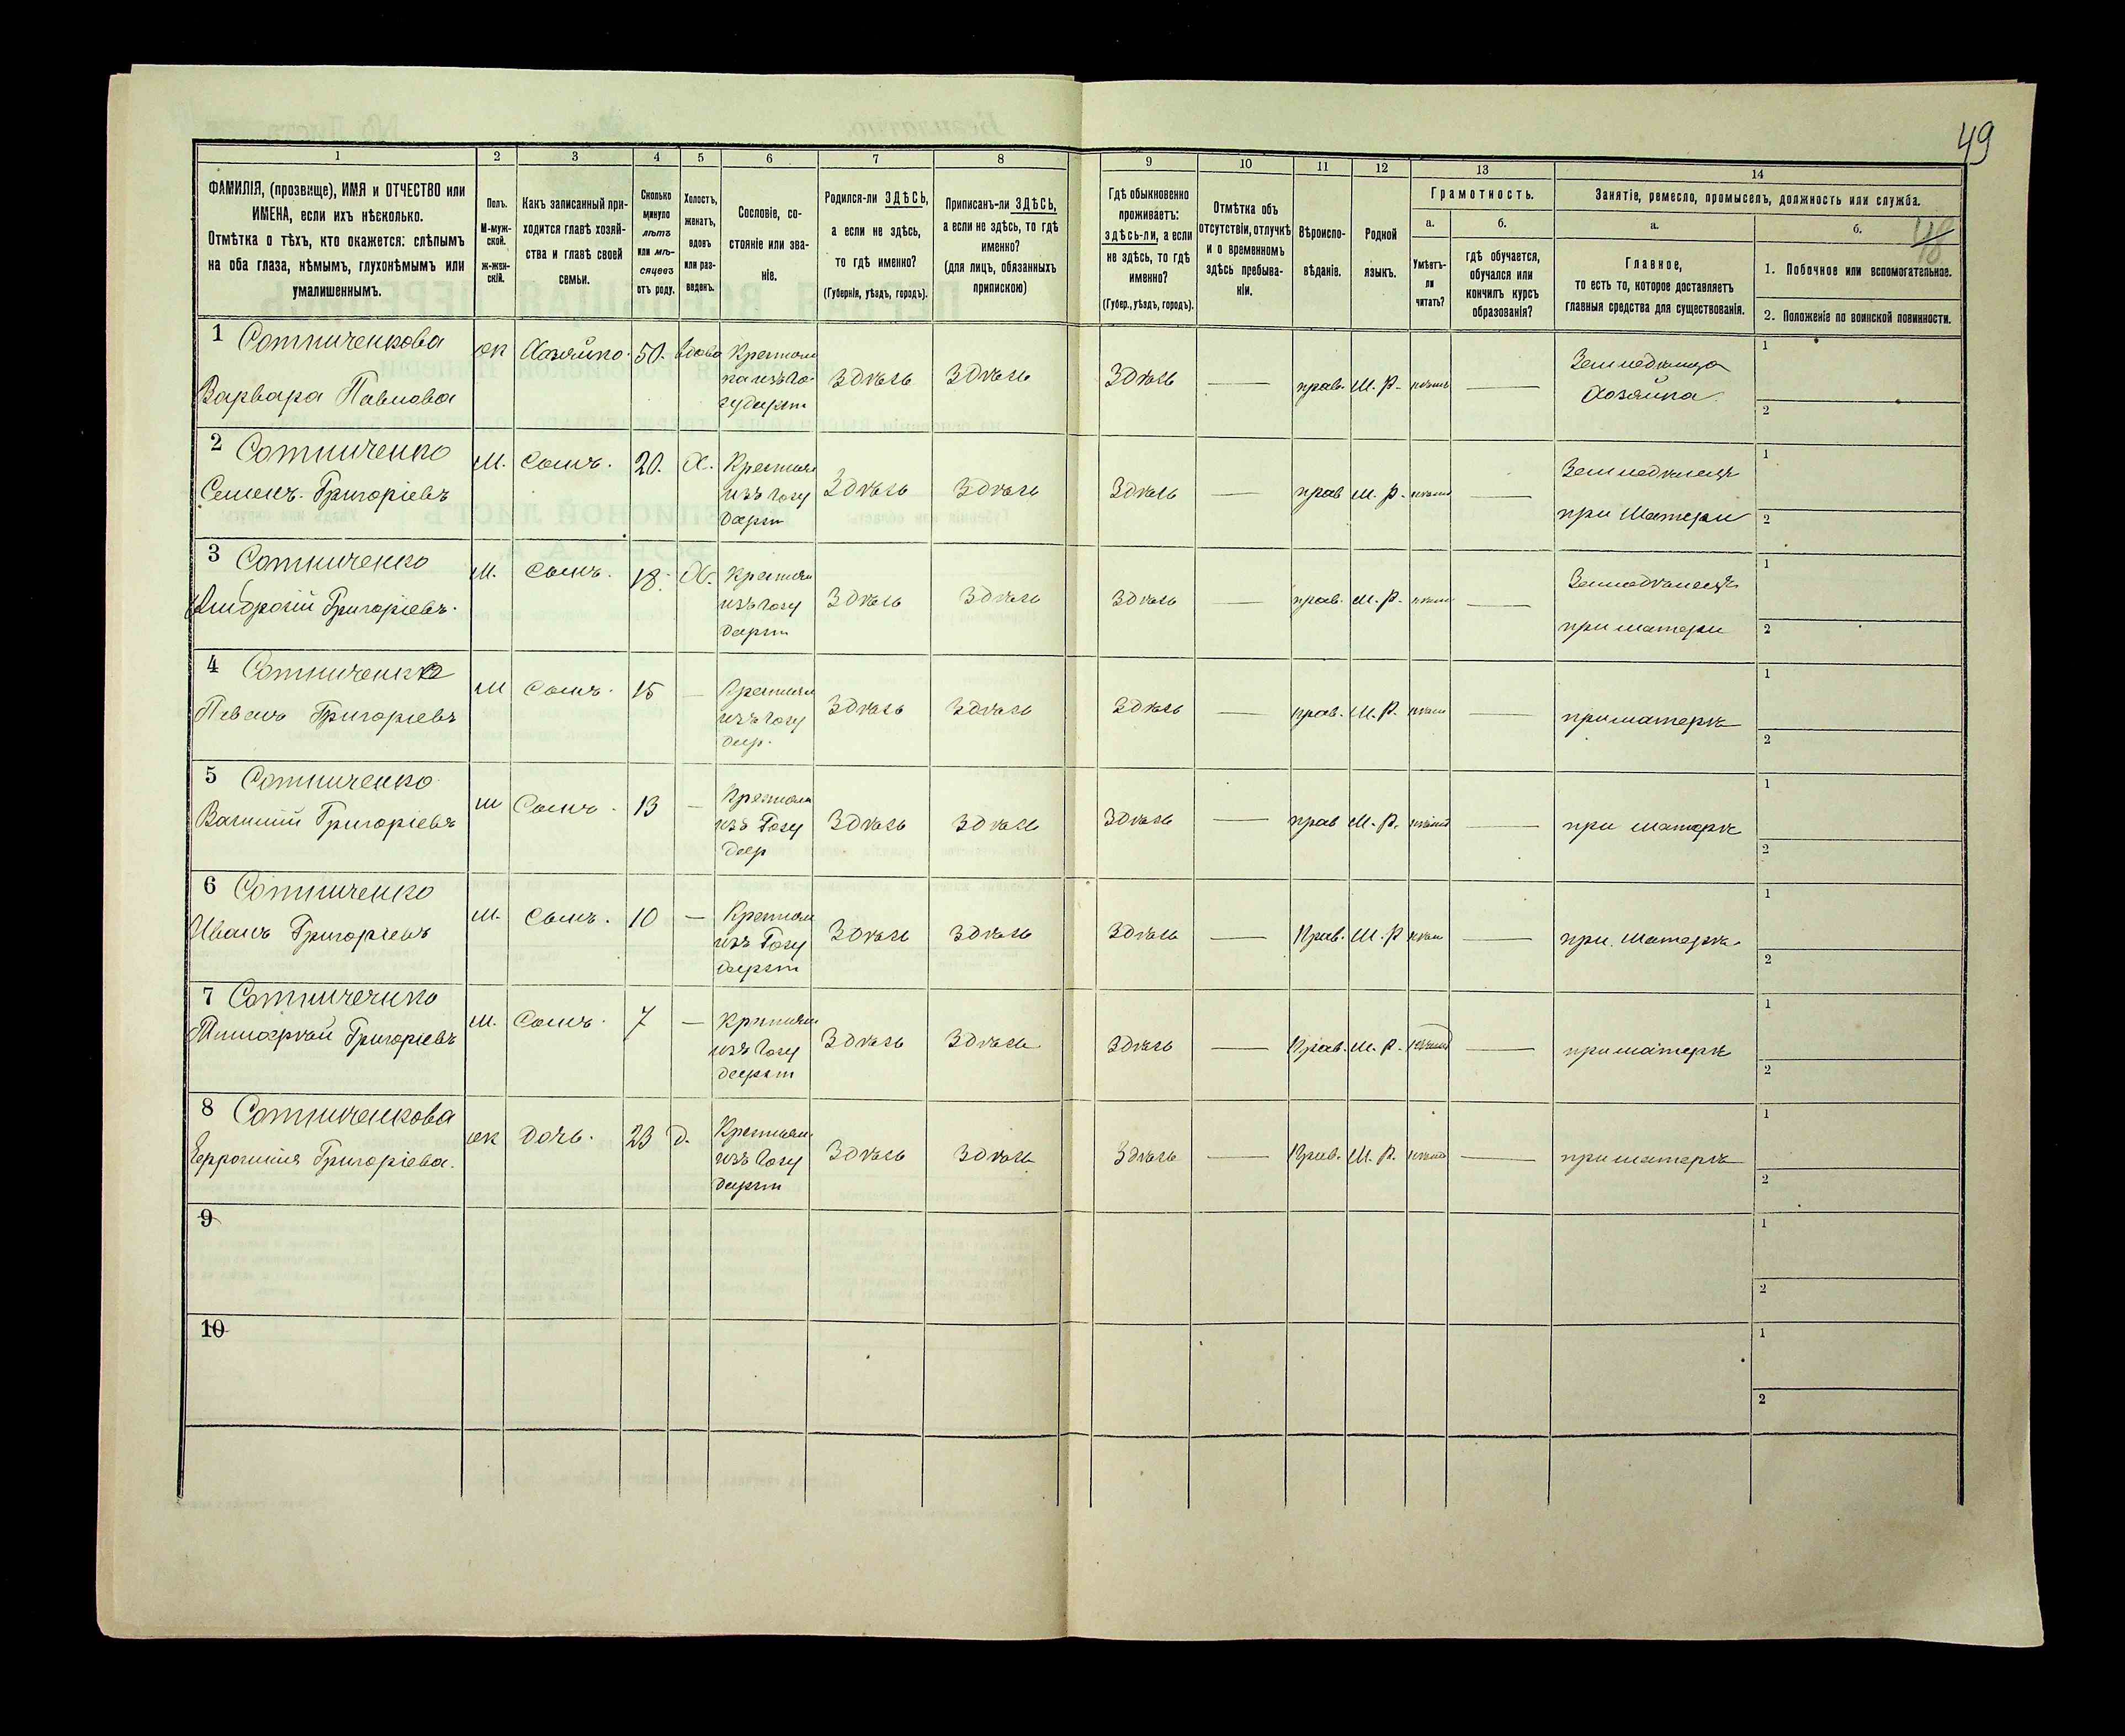 49
48
1
2
3
4
5
6
7
8
9
10
11
12
13
14
ФАМИЛІЯ, (прозвище), ИМЯ и ОТЧЕСТВО или
ИМЕНА, если ихъ нѣсколько.
Отмѣтка о тѣхъ, кто окажется: слѣпымъ
на оба глаза, нѣмымъ, глухонѣмымъ или
умалишеннымъ.
Полъ.
М-муж-
ской.
ж-жен-
скій.
Какъ записанный при-
ходится главѣ хозяй-
ства и главѣ своей
семьи.
Сколько
минуло
лѣтъ
или мѣ-
сяцевъ
отъ роду.
Холостъ,
женатъ,
вдовъ
или раз-
веденъ.
Сословіе, со-
стояніе или зва-
ніе.
Родился-ли ЗДѢСЬ,
а если не здѣсь,
то гдѣ именно?
(Губернія, уѣздъ, городъ).
Приписанъ-ли ЗДѢСЬ,
а если не здѣсь, то гдѣ
именно?
(для лицъ, обязанныхъ
припискою)
Гдѣ обыкновенно
проживаетъ:
здѣсь-ли, а если
не здѣсь, то гдѣ
именно?
(Губер., уѣздъ, городъ).
Отмѣтка объ
отсутствіи, отлучкѣ
и о временномъ
здѣсь пребыва-
ніи.
Вѣроиспо-
вѣданіе.
Родной
языкъ.
Грамотность.
а.
Умѣетъ-
ли
читать?
б.
гдѣ обучается,
обучался или
кончилъ курсъ
образованія?
Занятіе, ремесло, промыселъ, должность или служба.
а.
Главное,
то есть то, которое доставляетъ
главныя средства для существованія.
б.
1. Побочное или вспомогательное.
2. Положеніе по воинской повинности.
1 Сотниченкова
Варвара Павлова
ж Хозяйка. 50. вдова Крестьян
ка изъ го
сударст
Здѣсь Здѣсь Здѣсь — прав. М. Р. нѣтъ —
Земледѣлица
Хозяйка
1
2
2 Сотниченко
Семенъ Григоріевъ
М. Сынъ. 20. Х. Крестьян
изъ госу
дарст
Здѣсь Здѣсь Здѣсь — прав М. Р. нѣтъ —
Земледѣлецъ
при Матери
1
2
3 Сотниченко
Амбросій Григоріевъ.
М. Сынъ. 18. Х. Крестьян
изъ госу
дарст
Здѣсь Здѣсь Здѣсь — прав. М. Р. нѣтъ —
Земледѣлецъ
при матери
1
2
4 Сотниченко
Григоріевъ
М Сынъ. 15 — Крестьян
изъ госу
дар.
Здѣсь Здѣсь Здѣсь — прав. М. Р. нѣтъ —
при матерѣ
1
2
5 Сотниченко
Василій Григоріевъ
М Сынъ. 13 — Крестьян
изъ Госу
дар
Здѣсь Здѣсь Здѣсь — прав М. Р. нѣтъ —
при матерѣ
1
2
6 Сотниченко
Иванъ Григоріевъ
М. Сынъ. 10 — Крестьян
изъ Госу
дарст
Здѣсь Здѣсь Здѣсь — Прав. М. Р нѣтъ —
при матерѣ.
1
2
7 Сотниченко
Григоріевъ
М. Сынъ. 7 —
изъ госу
дарст
Здѣсь Здѣсь Здѣсь — Прав. М. Р. нѣтъ —
при матерѣ
1
2
8 Сотниченкова
Григоріева.
ж дочь. 23 д. Крестьян
изъ госу
дарст
Здѣсь Здѣсь Здѣсь — Прав. М. Р. нѣтъ —
при матерѣ
1
2
9
1
2
10
1
2